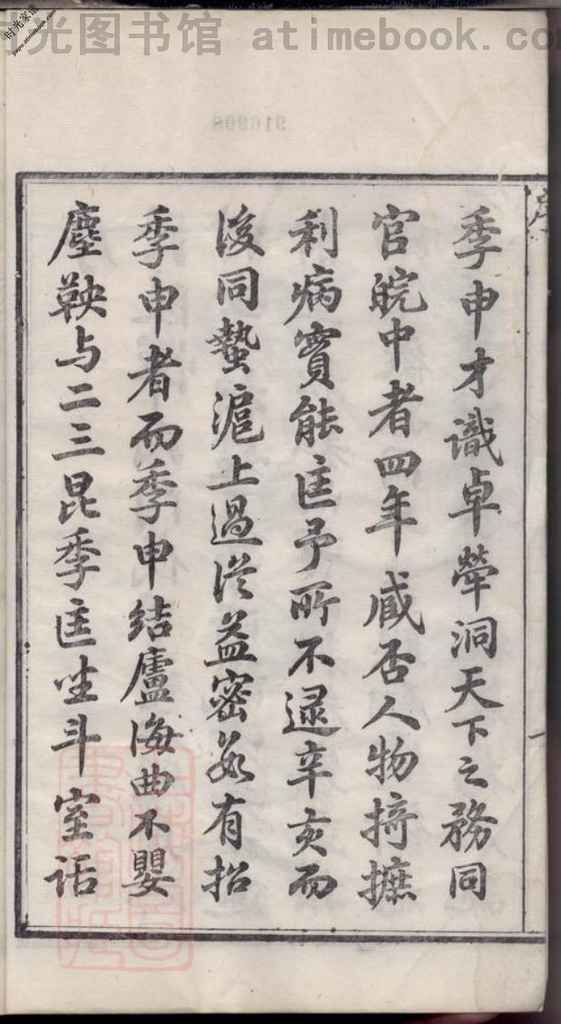 时光图书馆 atimebook.co
时光家谱
916908
序
季申才識卓犖洞天下之務同
官皖中者四年臧否人物掎摭
利病實能匡予所不逮辛亥而
後同蟄滬上過從益密每有招
季申者而季申結廬海曲不嬰
塵鞅与二三昆季匡坐斗室話